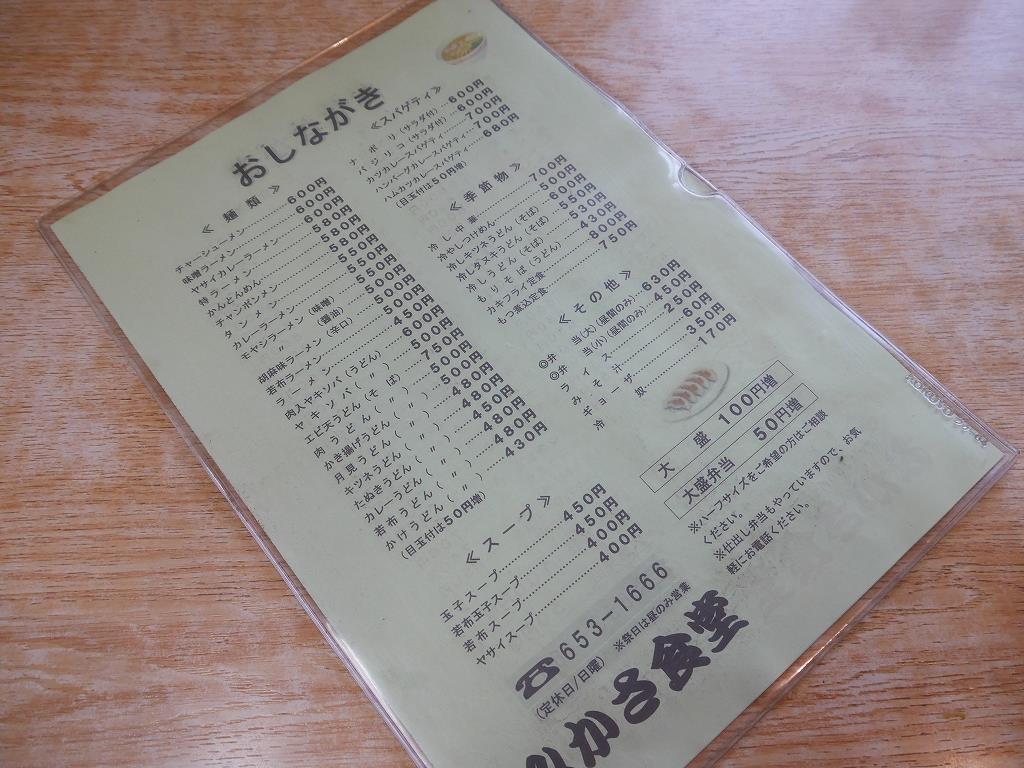 おしながき
≪麺類≫
チャーシューメン……600円
味噌ラーメン……600円
ヤサイカレーラーメン……600円
特ラーメン……580円
かんとんめん……580円
チャンポンメン……550円
タンメン……550円
カレーラーメン……550円
モヤシラーメン(味噌)……500円
〃(醤油)……500円
胡麻味ラーメン(辛口)……500円
若布ラーメン……500円
ラーメン……450円
肉入ヤキソバ(うどん)……600円
ヤキソバ(〃)……500円
エビ天うどん(そば)……750円
肉うどん(〃)……500円
かき揚げうどん(〃)……500円
月見うどん(〃)……480円
キツネうどん(〃)……480円
たぬきうどん(〃)……450円
カレーうどん(〃)……480円
若布うどん(〃)……480円
かけうどん(〃)……430円
(目玉付は50円増)
≪スープ≫
玉子スープ……450円
若布玉子スープ……450円
若布スープ……400円
ヤサイスープ……400円
≪スパゲティ≫
ナポリ(サラダ付)…600円
バジリコ(サラダ付)…600円
カツカレースパゲティ……700円
ハンバーグカレースパゲティ…700円
ハムカツカレースパゲティ……680円
(目玉付は50円増)
≪季節物≫
冷し中華……700円
冷やしつけめん……500円
冷しキツネうどん(そば)……560円
冷しタヌキうどん(そば)……550円
冷しうどん(そば)……530円
もりそば(うどん)……430円
カキフライ定食……800円
もつ煮込定食……750円
≪その他≫
◎弁当(大)(昼間のみ)…630円
◎弁当(小)(昼間のみ)…450円
ライス……250円
みそ汁……60円
ギョーザ……350円
冷奴……170円
大盛 100円増
大盛弁当 50円増
※ハーフサイズをご希望の方はご相談
ください。
※仕出し弁当もやっていますので、お気
軽にお電話ください。
☎653-1666
(定休日/日曜) ※祭日は昼のみ営業
かさ食堂